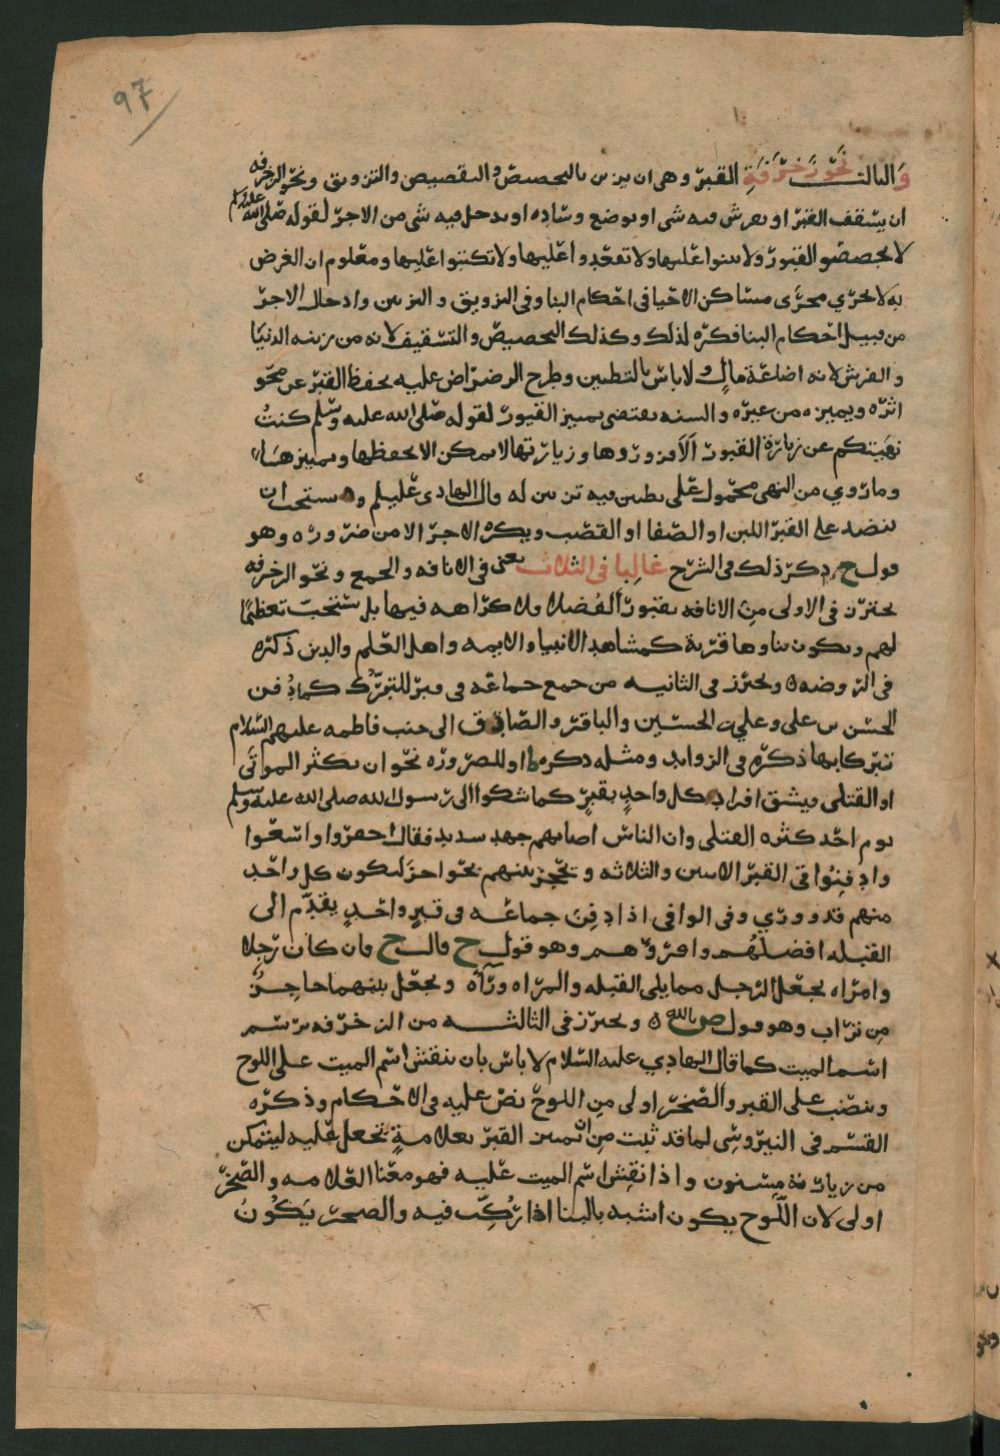 97
والثالث نحو زخرفة القبر وهي ان يزين بالتجصيص والتقصيص والتزويق ونحو الزخرفه
ان يسقف القبر او يفرش فيه شي او توضع وساده او يدخل فيه شي من الاجر لقوله صلى الله عليه وسلم
لا تجصصوا القبور ولا تبنوا عليها ولا تقعدوا عليها ولا تكتبوا عليها ومعلوم ان الغرض
به لا تجري مجرى مساكن الاحيا في احكام البنا وفي التزويق والتزيين وادخال الاجر
من قبيل احكام البنا فكره لذلك وكذلك التجصيص والتسقيف لانه من زينه الدنيا
والفرش لانه اضاعة مال ولا باس بالتطيين وطرح الرضراض عليه يحفظ القبر عن محو
اثره ويميزه من غيره والسنه تقتضي تمييز القبور لقوله صلى الله عليه وسلم كنت
نهيتكم عن زيارة القبور الا فزوروها وزيارتها لا يمكن الا بحفظها وتمييزها
وما روي من النهي محمول على تطيين فيه تزيين له قال الهادي عليلم ويستحب ان
ينضد على القبر اللبن او الصفا او القصب ويكره الاجر الا من ضروره وهو
قول ح ذكر ذلك في الشرح غالبا في الثلاث يعني في الانافه والجمع ونحو الزخرفه
يحترز في الاولى من الانافه بقبور الفضلا فلا كراهه فيها بل يستحب تعظيما
لهم ويكون بناوها قربة كمشاهد الانبيا والايمه واهل العلم والدين ذكره
في الروضه ويحترز في الثانيه من جمع جماعه في قبر للتبرك كما دفن
الحسن بن علي وعلي بن الحسين والباقر والصادق الى جنب فاطمه عليهم السلام
تبركا بها ذكره في الزوايد ومثله ذكره ط او للضروره نحو ان يكثر الموتى
او القتلى ويشق افراد كل واحد بقبر كما شكوا الى رسول الله صلى الله عليه وسلم
يوم احد كثره القتلى وان الناس اصابهم جهد شديد فقال احفروا واسعوا
وادفنوا في القبر الاثنين والثلاثه ويحجز بينهم بحواجز ليكون كل واحد
منهم قد ووري وفي الوافي اذا دفن جماعه في قبر واحد يقدم الى
القبله افضلهم واقروهم وهو قول ح قال ح فان كان رجلا
وامراه يجعل الرجل مما يلي القبله والمراه وراه ويجعل بينهما حاجز
من تراب وهو قول ص بالله ويحترز في الثالثه من الزخرفه برسم
اسم الميت كما قال الهادي عليه السلام لا باس بان ينقش اسم الميت على اللوح
وينصب على القبر والصخر اولى من اللوح نص عليه في الاحكام وذكره
القسم في النيروسي لما قد ثبت من ان تمييز القبر بعلامة تجعل عليه ليتمكن
من زيارته مسنون واذا نقش اسم الميت عليه فهو معنا العلامه والصخر
اولى لان اللوح يكون اشبه بالبنا اذا ركب فيه والصخر يكون